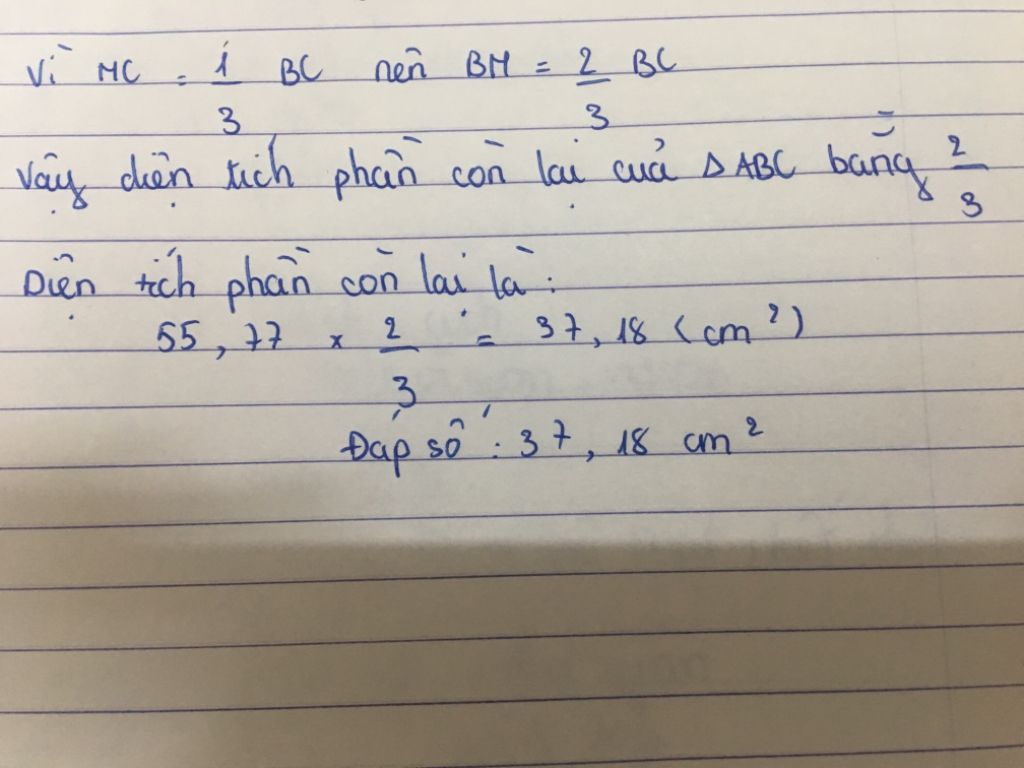 Vì MC = 1/3 BC nên BM = 2/3 BC
Vậy diện tích phần còn lại của Δ ABC bằng 2/3
Diện tích phần còn lại là:
55,77 x 2/3 = 37,18 (cm²)
Đáp số: 37,18 cm²